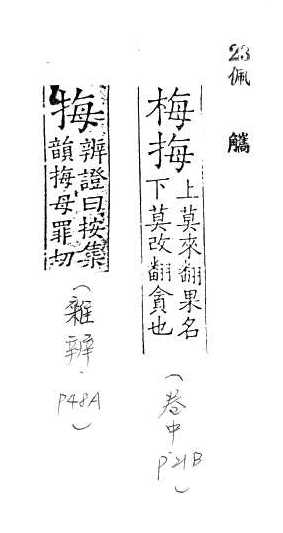 23
佩觿
梅挴
上莫來翻果名
下莫改翻貪也
(卷中
P21B)
挴
辨證曰按集
韻挴母罪切
(雜辨
P48A)